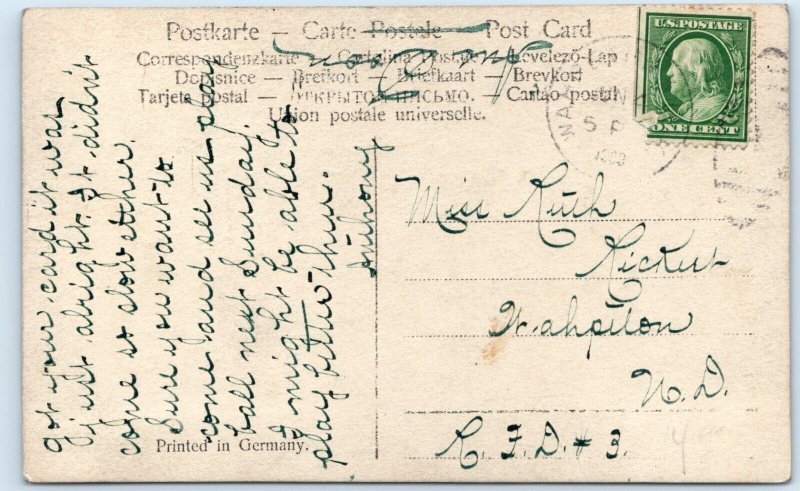 Postkarte – Carte Postale – Post Card
Correspondenzkarte – Cartolina postale – Levelező-Lap
Dopisnice – Brefkort – Briefkaart – Brevkort
Tarjeta postal – ОТКРЫТОЕ ПИСЬМО. – Cartão postal
Union postale universelle.
U.S. POSTAGE
ONE CENT
WAH
5 P
1909
got your card it was
just alright. It didn't
come so slow either.
Sure you want to
come and see us play
ball next Sunday.
I might be able to
play better then.
Anthony
Miss Ruth
Rickert
Wahpeton
N. D.
R. F. D. # 3.
Printed in Germany.